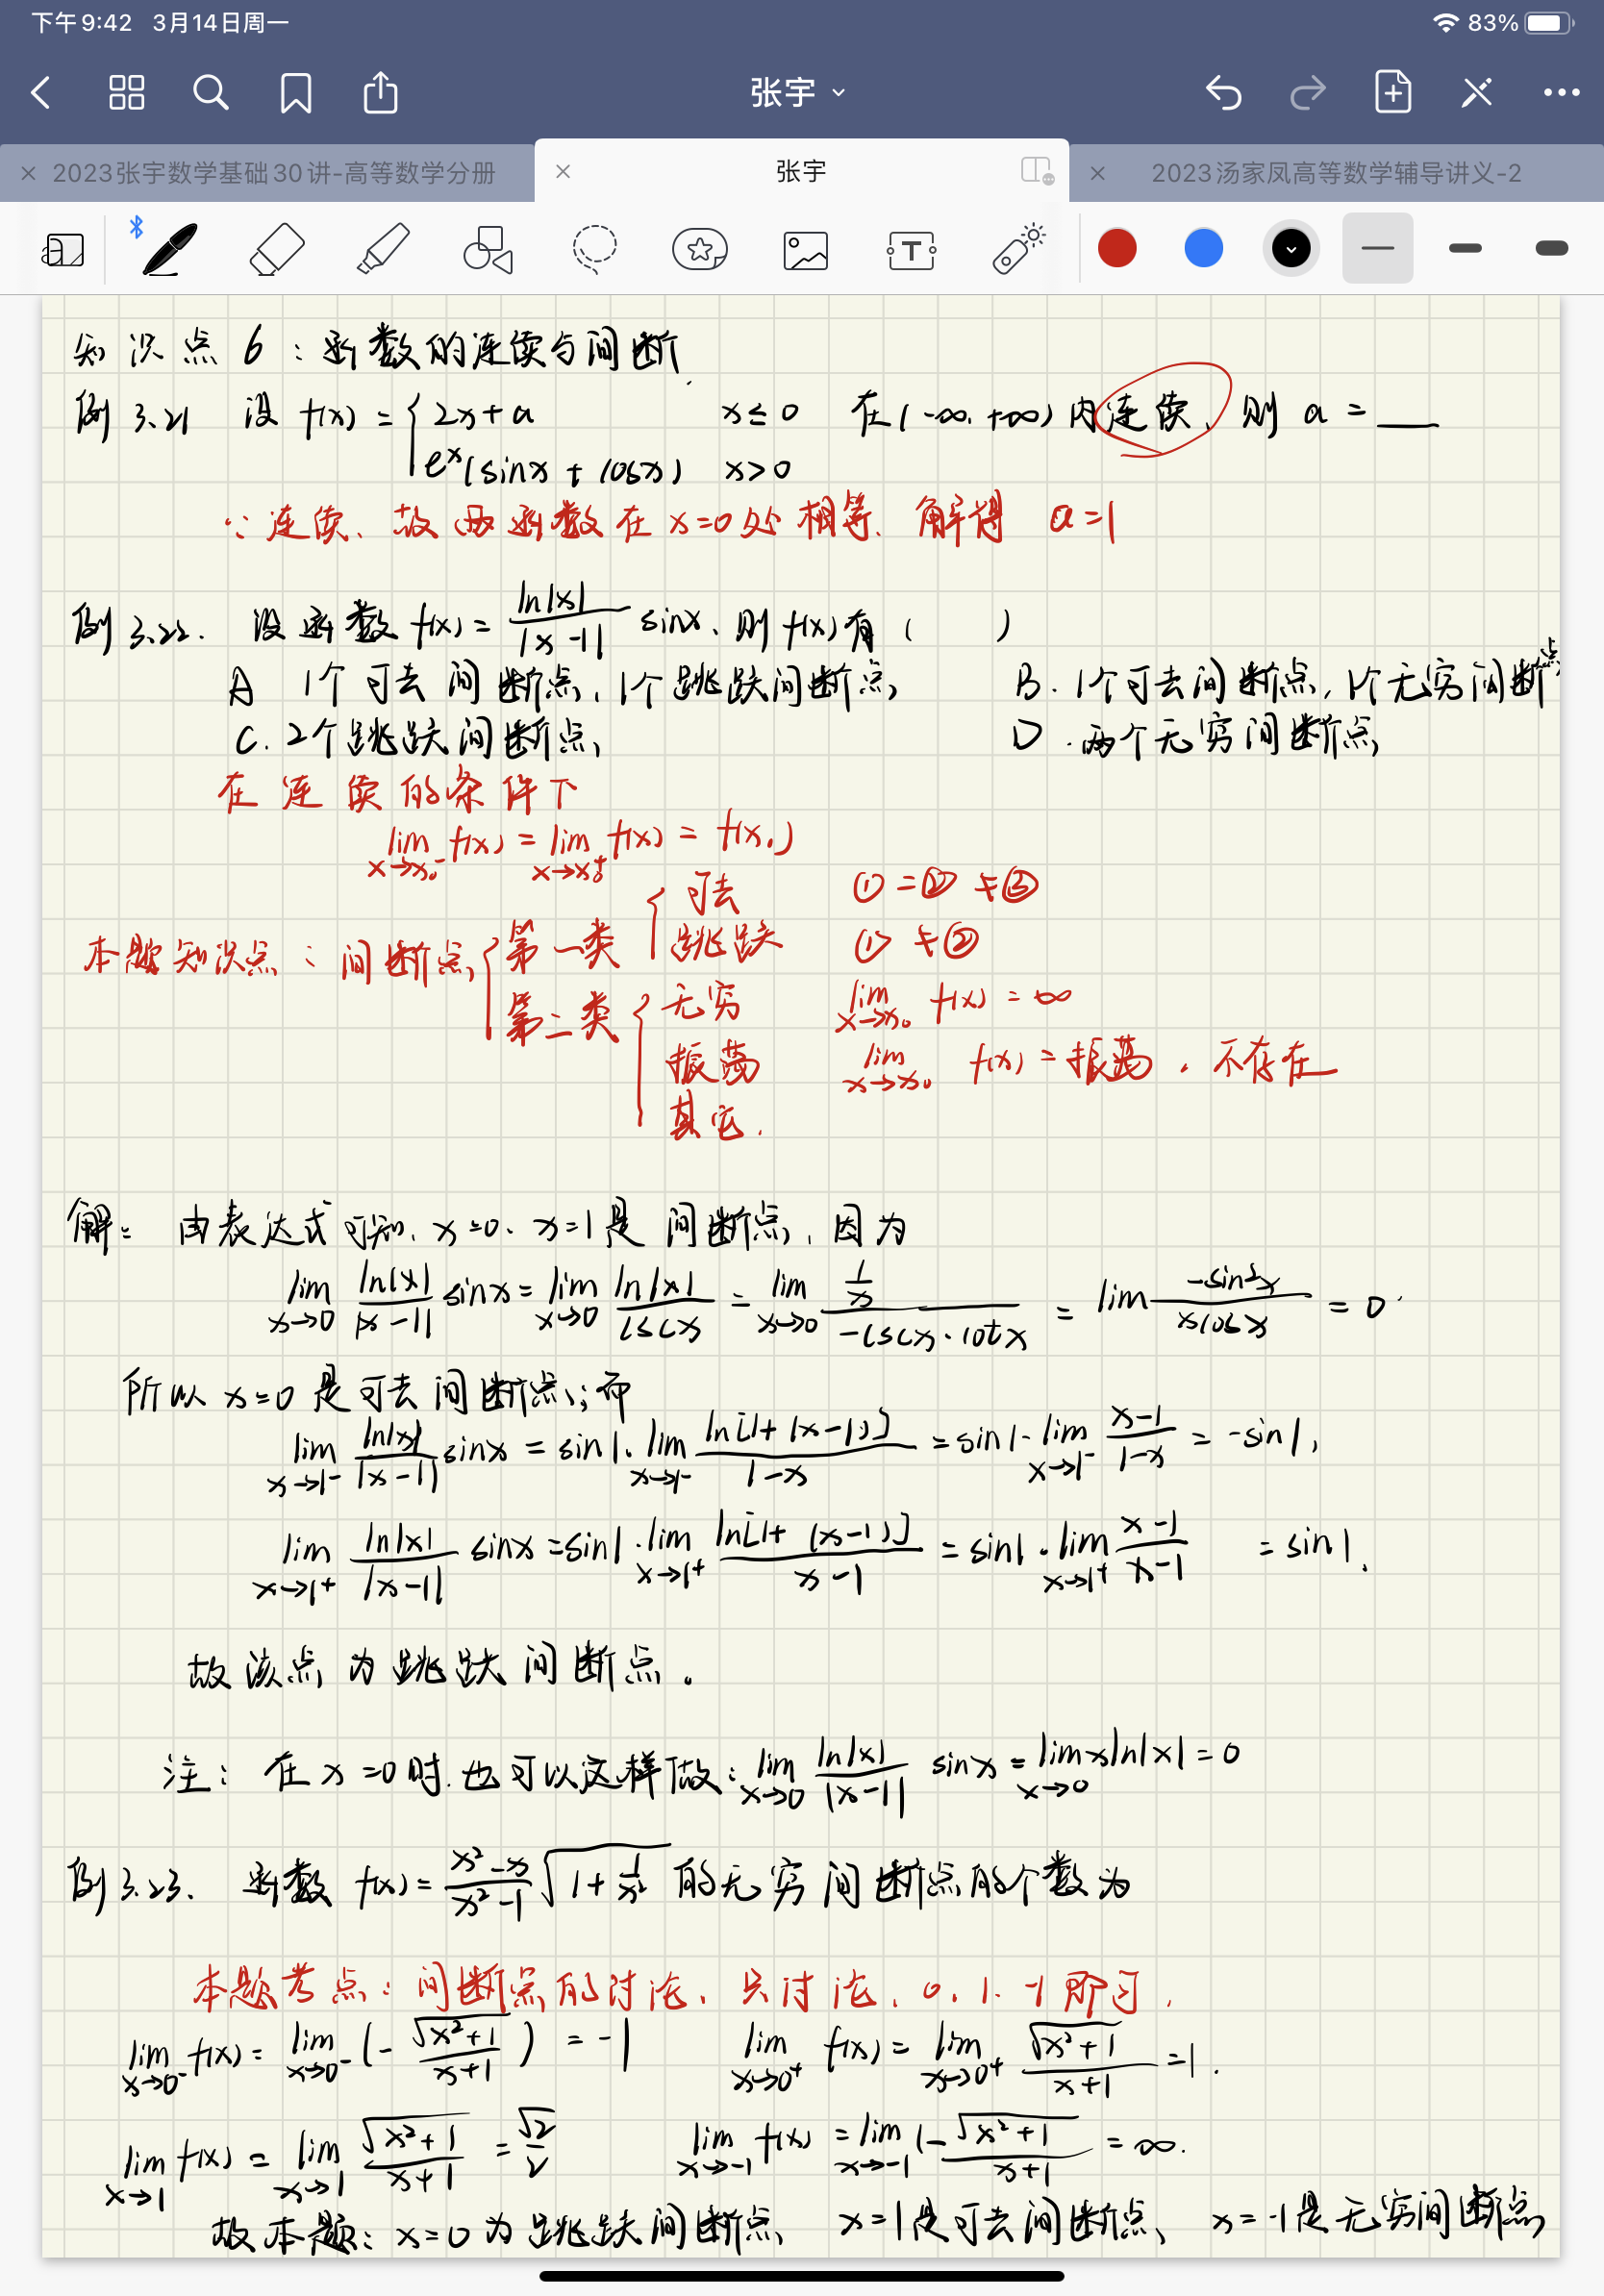 下午9:42 3月14日周一 83%
张宇
2023张宇数学基础30讲-高等数学分册 张宇 2023汤家凤高等数学辅导讲义-2
知识点6：函数的连续与间断
例3.21 设 f(x) = { 2x+a x≤0 在(-∞,+∞)内连续, 则 a = ___
e^x(sinx + cosx) x>0
∵连续、故两函数在x=0处相等. 解得 a=1
例3.22. 设函数f(x) = ln|x|/|x-1| sinx、则f(x)有( )
A 1个可去间断点、1个跳跃间断点 B. 1个可去间断点, 1个无穷间断点
C. 2个跳跃间断点 D. 两个无穷间断点
在连续的条件下
lim x→x₀⁻ f(x) = lim x→x₀⁺ f(x) = f(x₀)
本题知识点：间断点 { 第一类 { 可去 ①=②≠③
跳跃 ①≠②
第二类 { 无穷 lim x→x₀ f(x) = ∞
振荡 lim x→x₀ f(x) = 振荡, 不存在
其它.
解: 由表达式可知, x=0、x=1是间断点, 因为
lim x→0 ln|x|/|x-1| sinx = lim x→0 ln|x|/cscx = lim x→0 (1/x)/(-cscx·cotx) = lim -sin²x/(xcosx) = 0
所以x=0是可去间断点；而
lim x→1⁻ ln|x|/|x-1| sinx = sin1·lim x→1⁻ ln[1+(x-1)]/(1-x) = sin1·lim x→1⁻ (x-1)/(1-x) = -sin1,
lim x→1⁺ ln|x|/|x-1| sinx = sin1·lim x→1⁺ ln[1+(x-1)]/(x-1) = sin1·lim x→1⁺ (x-1)/(x-1) = sin1.
故该点为跳跃间断点。
注: 在x=0时. 也可以这样做: lim x→0 ln|x|/|x-1| sinx = lim x→0 xln|x| = 0
例3.23. 函数 f(x) = (x²-x)/(x²-1) √(1+1/x²) 的无穷间断点的个数为
本题考点: 间断点的讨论、只讨论、0、1、-1即可.
lim x→0⁻ f(x) = lim x→0⁻ (-√(x²+1)/(x+1)) = -1 lim x→0⁺ f(x) = lim x→0⁺ √(x²+1)/(x+1) = 1.
lim x→1 f(x) = lim x→1 √(x²+1)/(x+1) = √2/2 lim x→-1 f(x) = lim x→-1 (-√(x²+1)/(x+1) = ∞.
故本题: x=0为跳跃间断点 x=1是可去间断点、 x=-1是无穷间断点